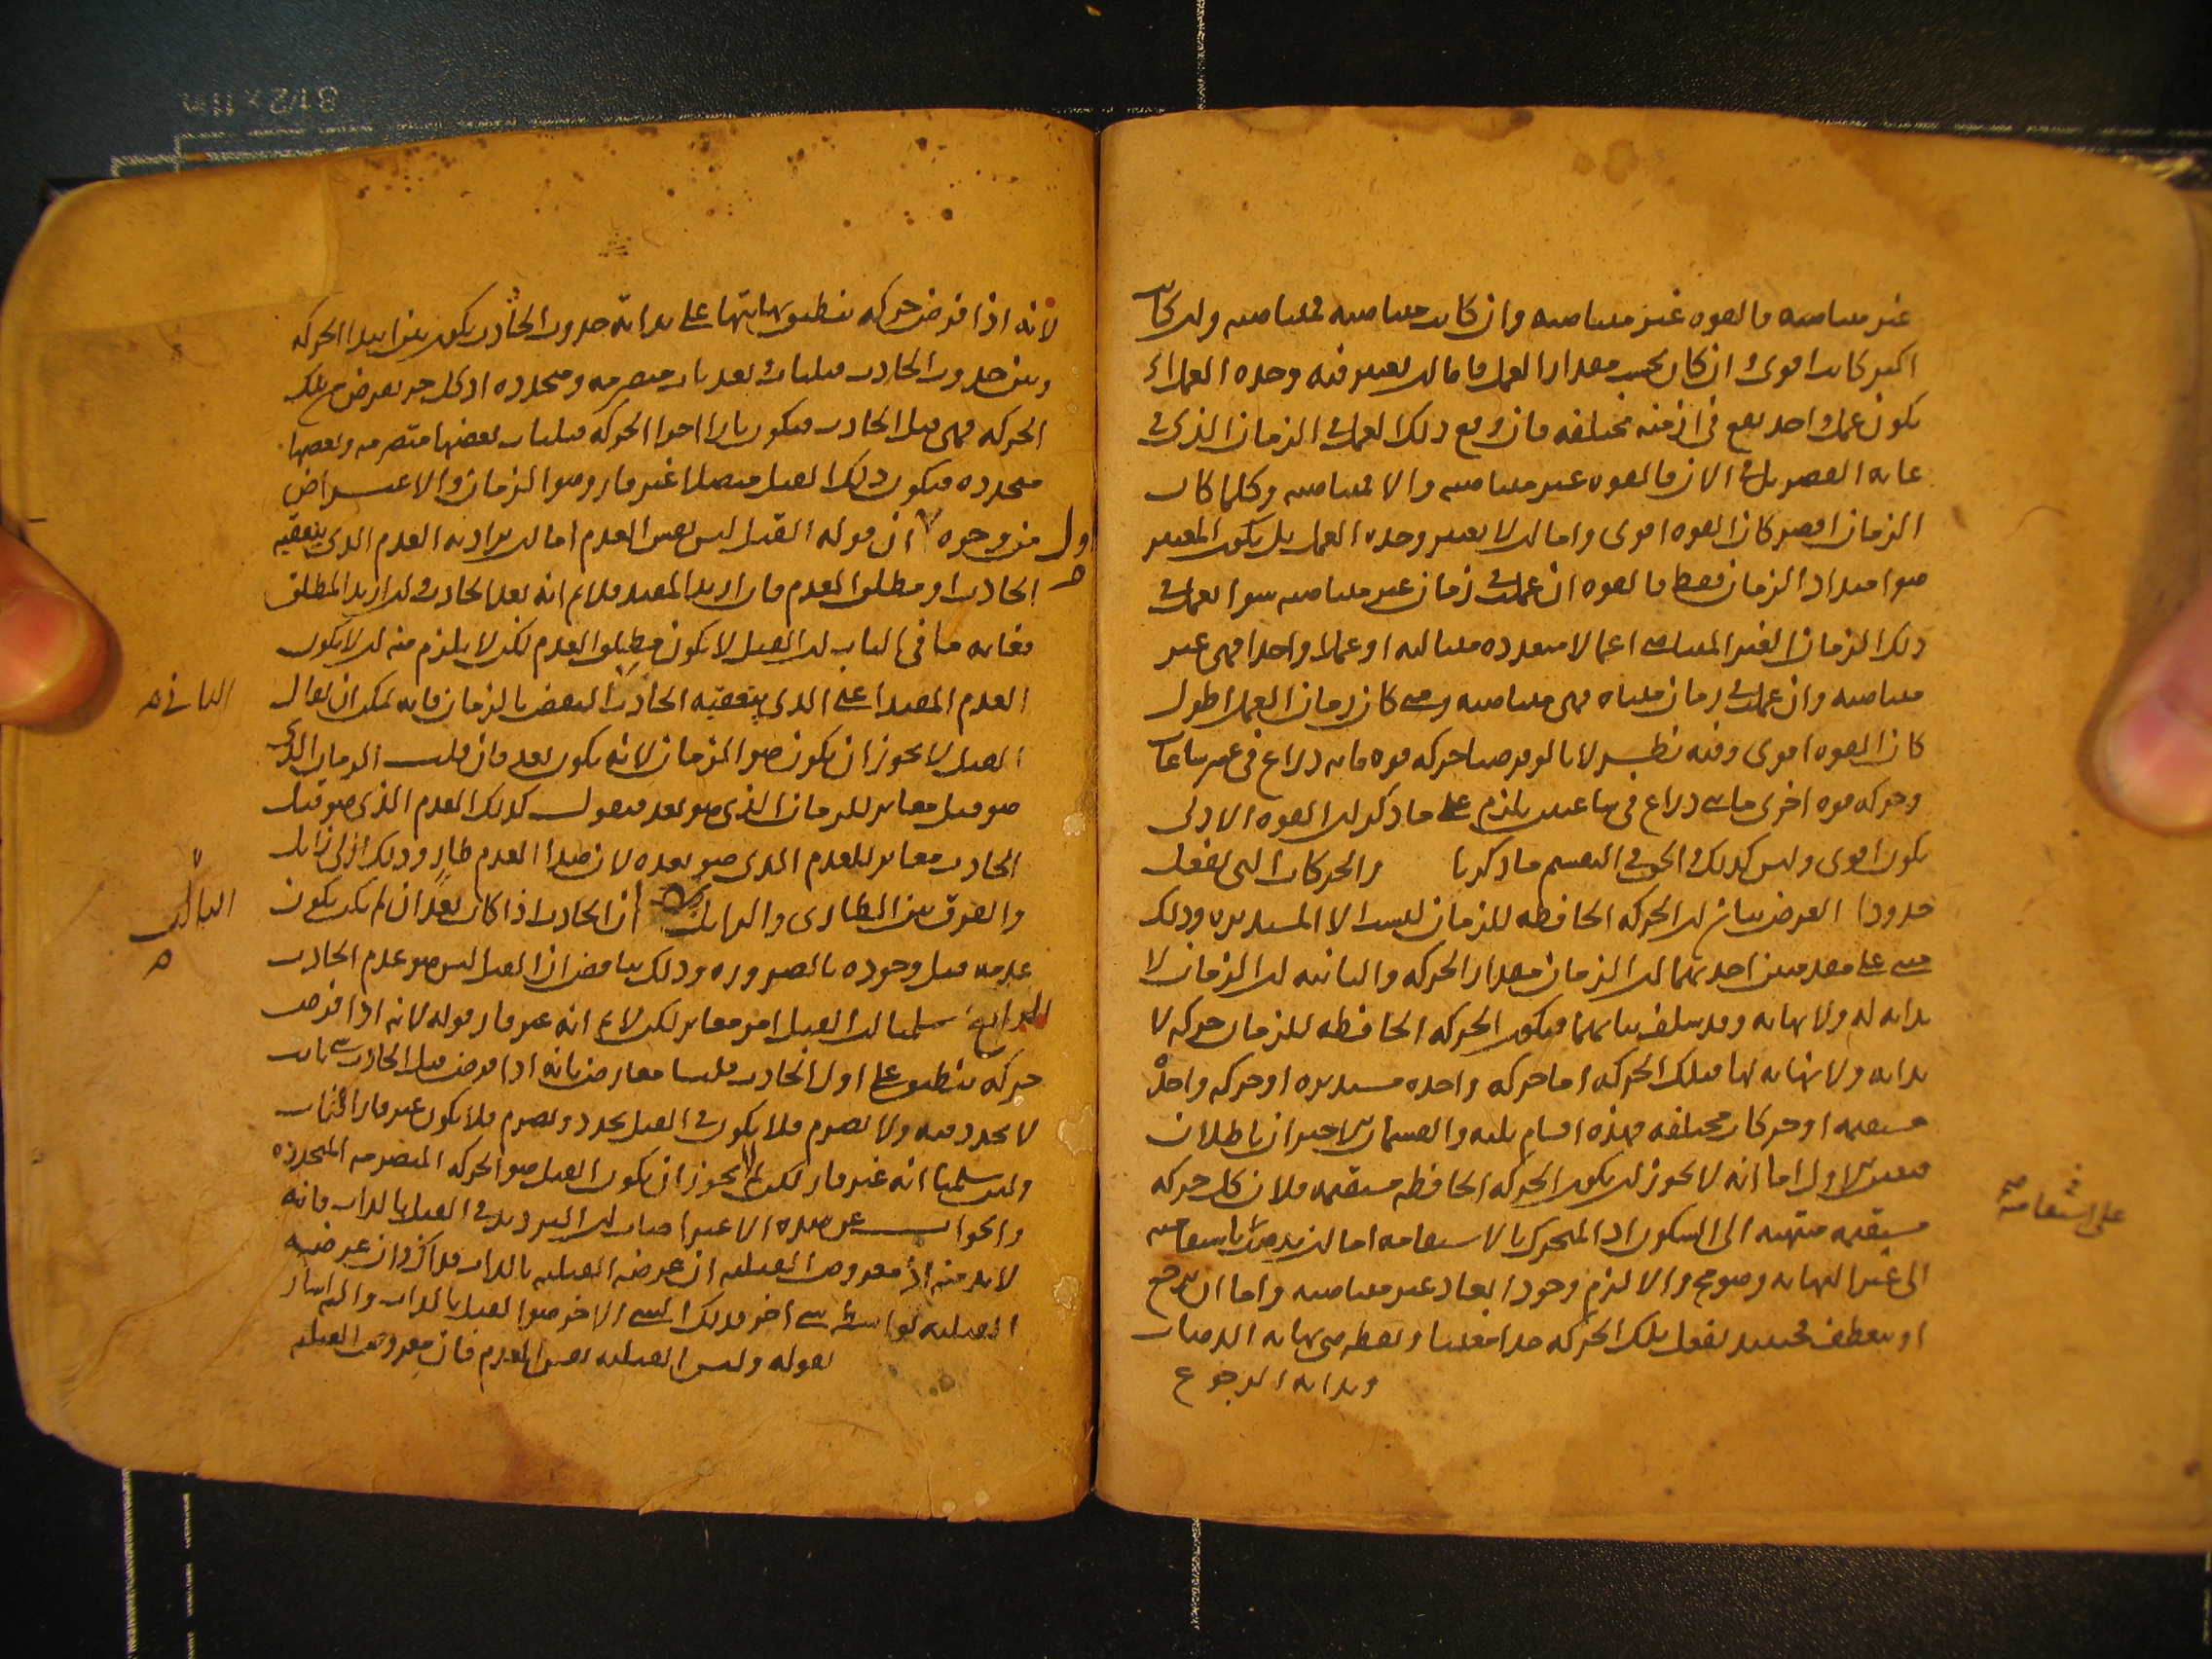 غير متناهيه فالقوه غير متناهيه وان كانت متناهيه فمتناهيه وان كانت
اكثر كانت اقوى وان كان بحسب مقدار العمل فاما ان يعتبر فيه وحده العمل او لا
يكون عمل واحد يقع فى ازمنه مختلفه فان وقع ذلك العمل فى الزمان الذى فى
غايه القصر بل فى الان فالقوه غير متناهيه والا فمتناهيه وكلما كان
الزمان اقصر كان القوه اقوى واما ان لا يعتبر وحده العمل بل يكون المعتبر
هو امتداد الزمان فقط فالقوه ان عملت فى زمان غير متناهيه سوا عملت فى
ذلك الزمان الغير المتناهى اعمالا متعدده متتاليه او عملا واحدا فهى غير
متناهيه وان عملت فى زمان متناه فهى متناهيه ومتى كان زمان العمل اطول
كان القوه اقوى وفيه نظر لانا لو فرضنا حركه قوه مايه ذراع فى عشر ساعات
وحركه قوه اخرى ماتى ذراع فى ساعتين يلزم على ما ذكر ان القوه الاولى
يكون اقوى وليس كذلك والحق فى التقسيم ما ذكرنا والحركات التى تفعل
حدودا الغرض بيان ان الحركه الحافظه للزمان ليست الا المستديره وذلك
مبنى على مقدمتين احديهما ان الزمان مقدار الحركه والثانيه ان الزمان لا
بدايه له ولا نهايه وقد سلف بيانهما فيكون الحركه الحافظه للزمان حركه لا
بدايه ولا نهايه لها فتلك الحركه اما حركه واحده مستديره او حركه واحده
مستقيمه او حركات مختلفه فهذه اقسام ثلثه والقسمان الاخيران باطلان
فتعين الاول اما انه لا يجوز ان يكون الحركه الحافظه مستقيمه فلان كل حركه
مستقيمه منتهيه الى السكون اذ المتحرك بالاستقامه اما ان يذهب باستقامته
على استقامته
الى غير النهايه وهو مح والا لزم وجود ابعاد غير متناهيه واما ان يرجع
او ينعطف فحينئذ يفعل بتلك الحركه حدا معينا ونقطه هى نهايه الذهاب
وبدايه الرجوع
لانه اذا فرض حركه ينطبق نهايتها على بدايه حدوث الحادث يكون بين ابتدا الحركه
وبين حدوث الحادث قبليات وبعديات متصرمه ومتجدده اذ كل جز يفرض من تلك
الحركه فهى قبل الحادث فيكون بازا اجزا الحركه قبليات بعضها متصرمه وبعضها
متجدده فيكون ذلك القبل متصلا غير قار وهو الزمان والاعتراض
من وجوه ان قوله القبل ليس نفس العدم اما ان يراد به العدم الذى يتعقبه
اول
الحادث او مطلق العدم فان اريد المقيد فلانم انه بعد الحادث وان اريد المطلق
فغايه ما فى الباب ان القبل لا يكون مطلق العدم لكن لا يلزم منه ان لا يكون
العدم المقيد اعنى الذى يتعقبه الحادث النقض بالزمان فانه يمكن ان يقال
الثانى
القبل لا يجوز ان يكون هو الزمان لانه يكون بعد فان قلت الزمان الذى
هو قبل مغاير للزمان الذى هو بعد فنقول كذلك العدم الذى هو قبل
الحادث مغاير للعدم الذى هو بعده لان هذا العدم طار وذلك ازلى زايل
والفرق بين الطارى والزايل ان الحادث اذا كان بعد ان لم يكن يكون
الثالث
عدمه قبل وجوده بالضروره وذلك يناقض ان القبل ليس هو عدم الحادث
الرابع سلمنا ان القبل امر مغاير لكن لانم انه غير قار قوله لانه اذا فرض
حركه ينطبق على اول الحادث قلنا معارض بانه اذا فرض قبل الحادث شى ثابت
لا يتجدد فيه ولا تصرم فلا يكون فى القبل تجدد وتصرم فلا يكون غير قار الذات
ولئن سلمنا انه غير قار لكن لم لا يجوز ان يكون القبل هو الحركه المتصرمه المتجدده
والجواب عن هذه الاعتراضات ان الترديد فى القبل بالذات فانه
لا بد منه اذ معروض القبليه ان عرضه القبليه بالذات فذاك وان عرضته
القبليه بواسطه شى اخر فذلك الشى الاخر هو القبل بالذات واليه اشار
بقوله وليس القبليه نفس العدم فان معروض القبليه